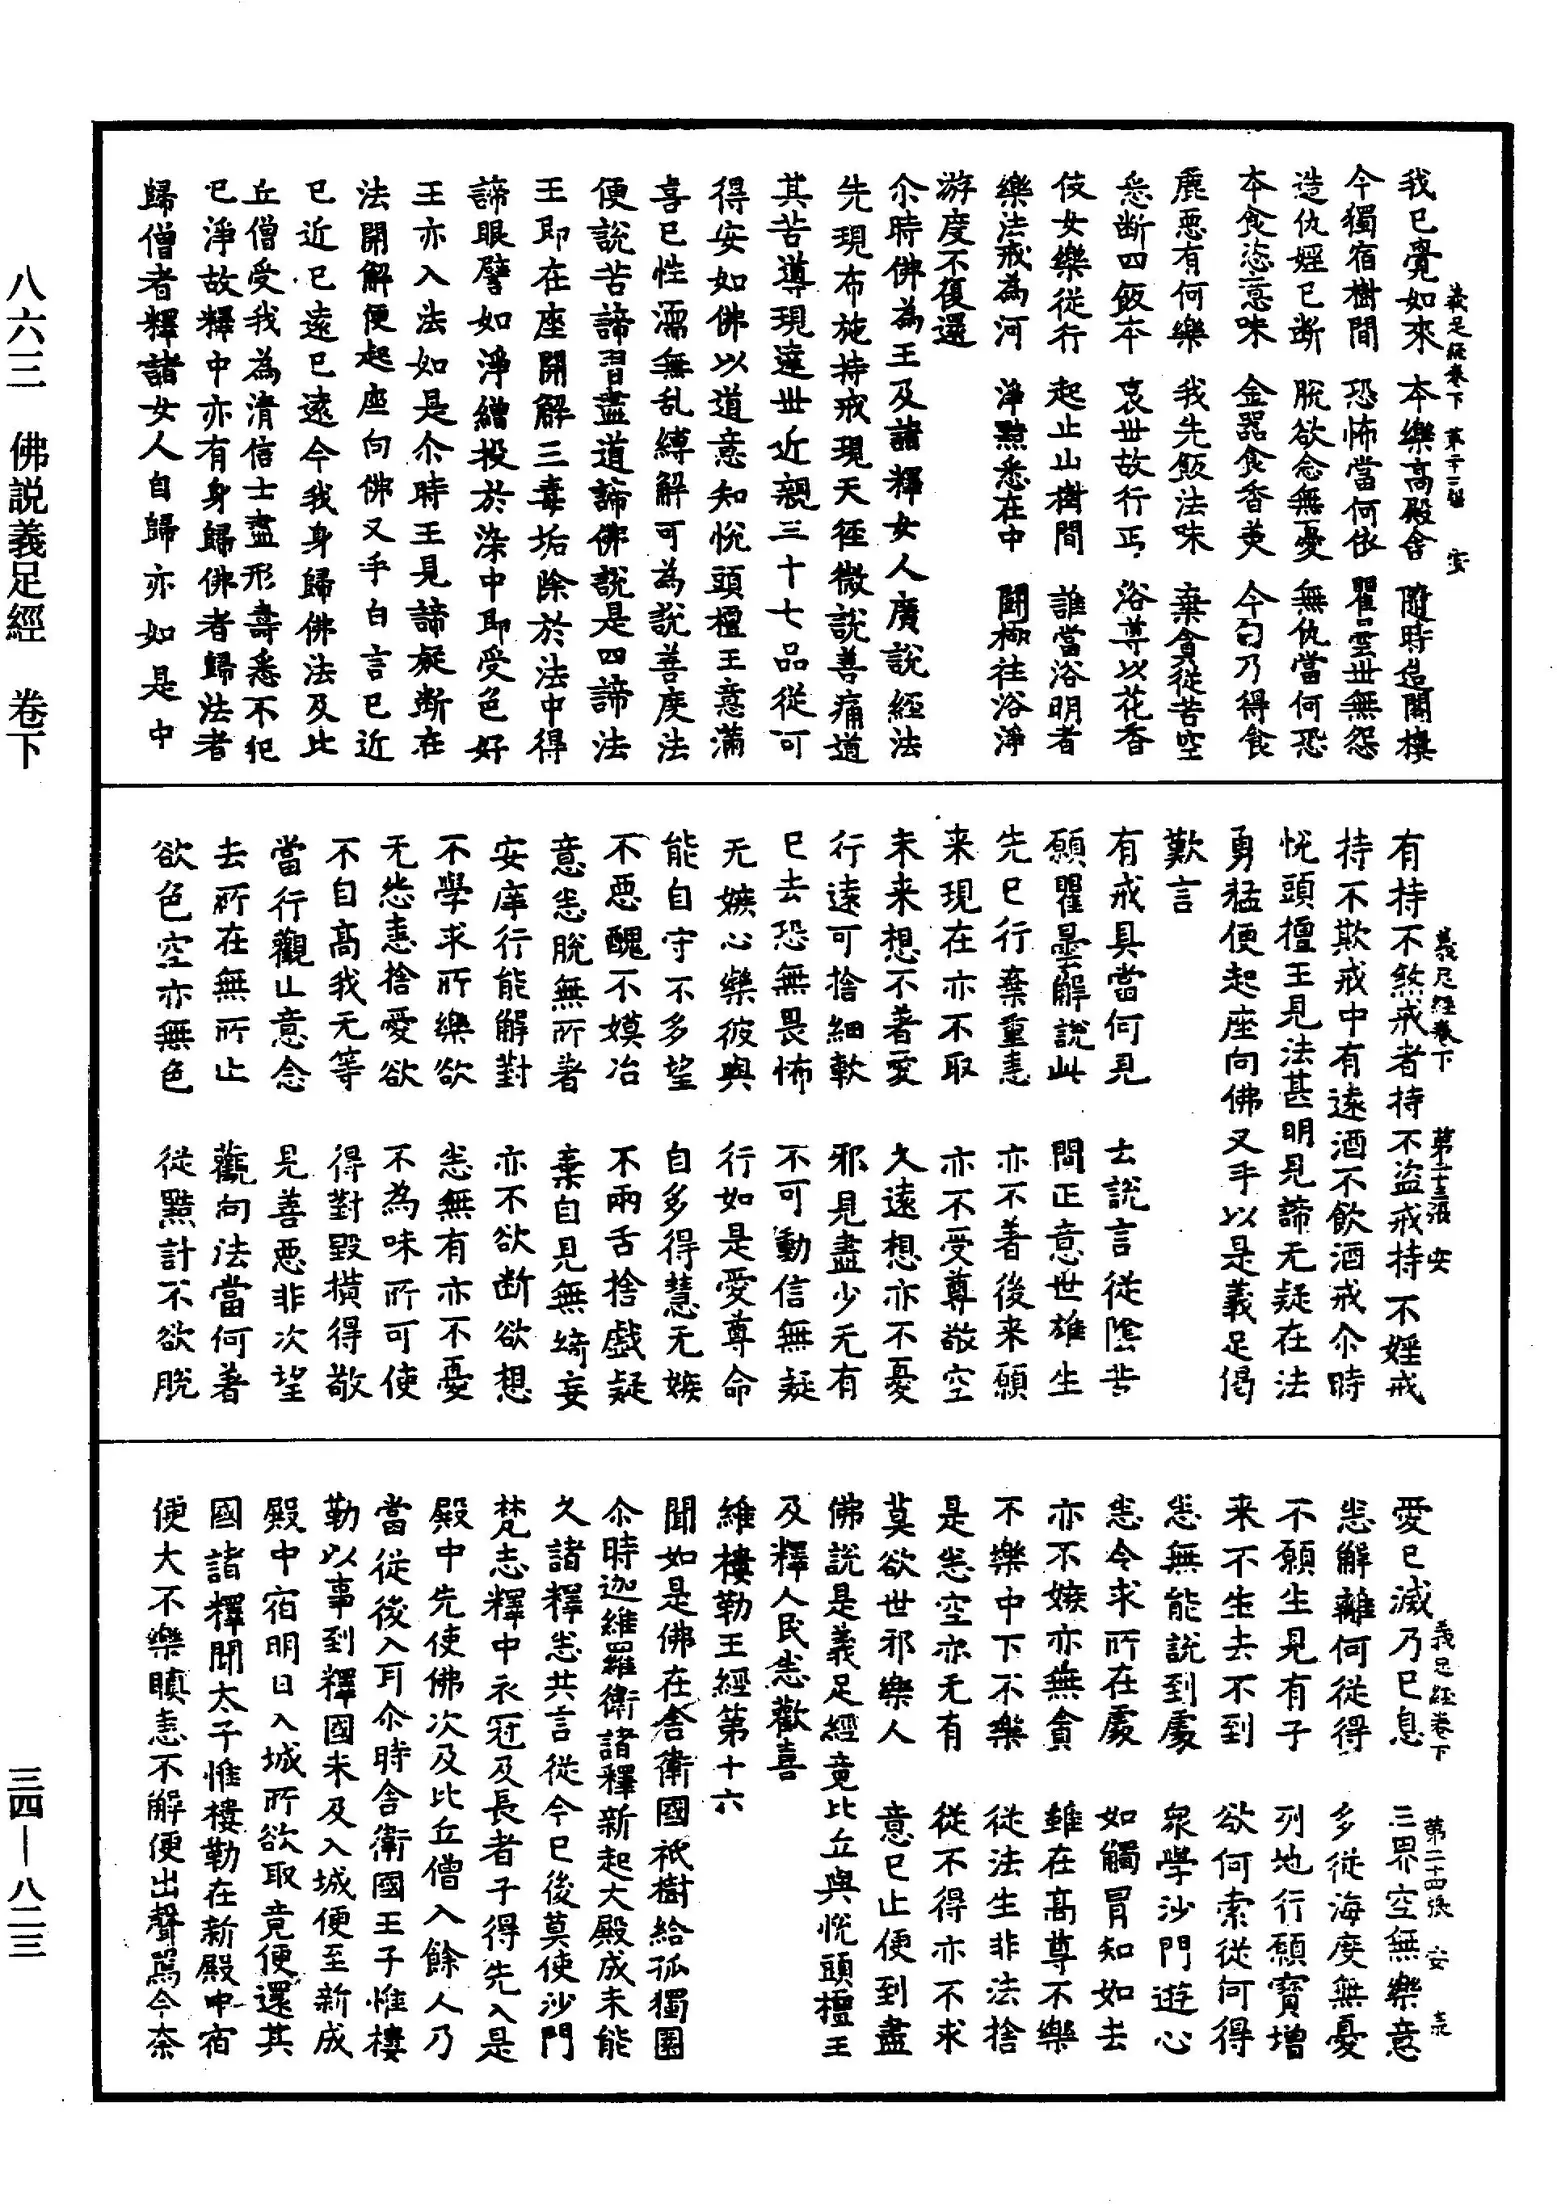 八六三　佛説義足經　卷下
三四—八二三
義足經卷下　第二十二張　安
我已覺如來　本樂高殿舍　隨時造閣樓
今獨宿樹間　恐怖當何依　瞿曇世無怨
造仇婬已断　脫欲念無憂　無仇當何恐
本食恣意味　金器食香美　今匂乃得食
麁惡有何樂　我先飯法味　棄貪從苦空
悉断四飯本　哀世故行丐　浴尊以花香
伎女樂從行　起止山樹間　誰當浴明者
樂法戒為河　淨黠悉在中　鬪極往浴淨
游度不復還
尒時佛為王及諸釋女人廣說經法
先現布施持戒現天徑微說善痛道
其苦導現遠世近親三十七品從可
得安如佛以道意知悅頭檀王意滿
喜已性濡無乱縛解可為說善度法
便說苦諦習盡道諦佛說是四諦法
王即在座開解三毒垢除於法中得
諦眼譬如淨繒投於染中即受色好
王亦入法如是尒時王見諦疑断在
法開解便起座向佛叉手白言已近
已近已遠已遠今我身歸佛法及比
丘僧受我為清信士盡形壽悉不犯
已淨故釋中亦有身歸佛者歸法者
歸僧者釋諸女人自歸亦如是中
義足經卷下　第二十三張　安
有持不煞戒者持不盜戒持不婬戒
持不欺戒中有遠酒不飲酒戒尒時
悅頭檀王見法甚明見諦无疑在法
勇猛便起座向佛叉手以是義足偈
歎言
有戒具當何見　士說言從陰苦
願瞿曇解說此　問正意世雄生
先已行棄重恚　亦不著後来願
来現在亦不取　亦不受尊敬空
未来想不著愛　久遠想亦不憂
行遠可捨細軟　邪見盡少无有
已去恐無畏怖　不可動信無疑
无嫉心樂彼與　行如是愛尊命
能自守不多望　自多得慧无嫉
不惡醜不嫫冶　不兩舌捨戲疑
意悉脫無所著　棄自見無綺妄
安庠行能解對　亦不欲断欲想
不學求所樂欲　悉無有亦不憂
无怨恚捨愛欲　不為味所可使
不自高我无等　得對毀橫得敬
當行觀止意念　見善惡非次望
去所在無所止　觀向法當何著
欲色空亦無色　從黠計不欲脫
義足經卷下　第二十四張　安
愛已滅乃已息　三界空無樂意
悉解離何從得　多從海度無憂
不願生見有子　列地行願寶增
来不生去不到　欲何索從何得
悉無能說到處　衆學沙門遊心
悉令求所在處　如觸冒知如去
亦不嫉亦無貪　雖在高尊不樂
不樂中下不樂　從法生非法捨
是悉空亦无有　從不得亦不求
莫欲世邪樂人　意已止便到盡
佛說是義足經竟比丘與悅頭檀王
及釋人民悉歡喜
維樓勒王經第十六
聞如是佛在舍衛國祇樹給孤獨園
尒時迦維羅衛諸釋新起大殿成未能
久諸釋悉共言從今已後莫使沙門
梵志釋中衣冠及長者子得先入是
殿中先使佛次及比丘僧入餘人乃
當從後入耳尒時舍衛國王子惟樓
勒以事到釋國未及入城便至新成
殿中宿明日入城所欲取竟便還其
國諸釋聞太子惟樓勒在新殿中宿
便大不樂瞋恚不解便出聲罵今柰